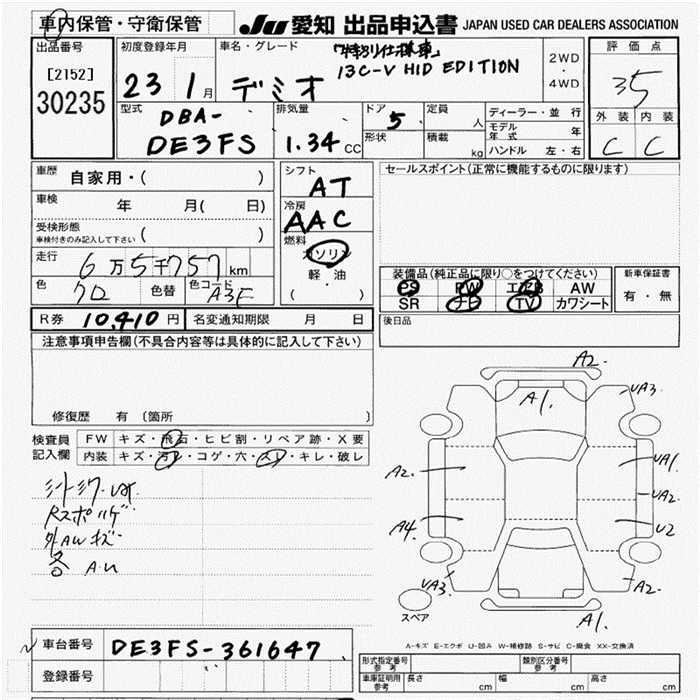 車内保管・守衛保管
JU 愛知 出品申込書 JAPAN USED CAR DEALERS ASSOCIATION
出品番号
[2152]
30235
初度登録年月
23 1月
車名・グレード
デミオ
「特別仕様車」
13C-V HID EDITION
2WD
・
4WD
評価点
3.5
外装 内装
C C
型式
DBA-
DE3FS
排気量
1.34 CC
ドア 5
形状
定員 人
積載 kg
ディーラー・並行
モデル年式 年
ハンドル 左・右
車歴 自家用・( )
車検 年 月( 日)
受検形態
車検付きのみ記入して下さい ( )
走行 6万5千757 km
色 クロ 色替 色コード A3F
シフト
AT
冷房
AAC
燃料
ガソリン
軽・油
( )
セールスポイント(正常に機能するものに限ります)
装備品(純正品に限り○をつけてください)
PS PW エアB AW
SR ナビ TV カワシート
新車保証書
有・無
後日品
R券 10,410円 名変通知期限 月 日
注意事項申告欄(不具合内容等は具体的に記入して下さい)
修復歴 有 〔箇所 〕
検査員記入欄
FW キズ・飛石・ヒビ割・リペア跡・X要
内装 キズ・汚レ・コゲ・穴・スレ・キレ・破レ
外AWキズ
各 A.U
A2
A1
UA3
A2
UA1
UA2
A4
U2
UA3
A2
A1
スペア
A-キズ E-エクボ U-凹み W-補修跡 S-サビ C-腐食 XX-交換済
車台番号 DE3FS-361647
登録番号
形式指定番号 参考
類別区分番号 参考
車庫証明用 参考 長さ cm 幅 cm 高さ cm